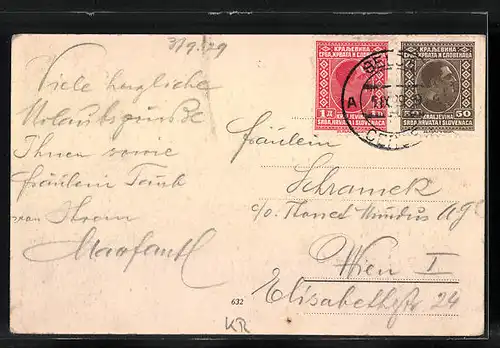 3/9. 29
Viele herzliche
Urlaubsgrüsse
Ihnen sowie
Fräulein Taub
von Ihrem
КРАЉЕВИНА
СРБА, ХРВАТА И СЛОВЕНАЦА
1 Д
KRALJEVINA
SRBA, HRVATA I SLOVENACA
КРАЉЕВИНА
СРБА, ХРВАТА И СЛОВЕНАЦА
50 50
KRALJEVINA
SRBA, HRVATA I SLOVENACA
A
Fräulein
Schramek
c/o Mundus AG
Wien I
Elisabethstr 24
632
KR